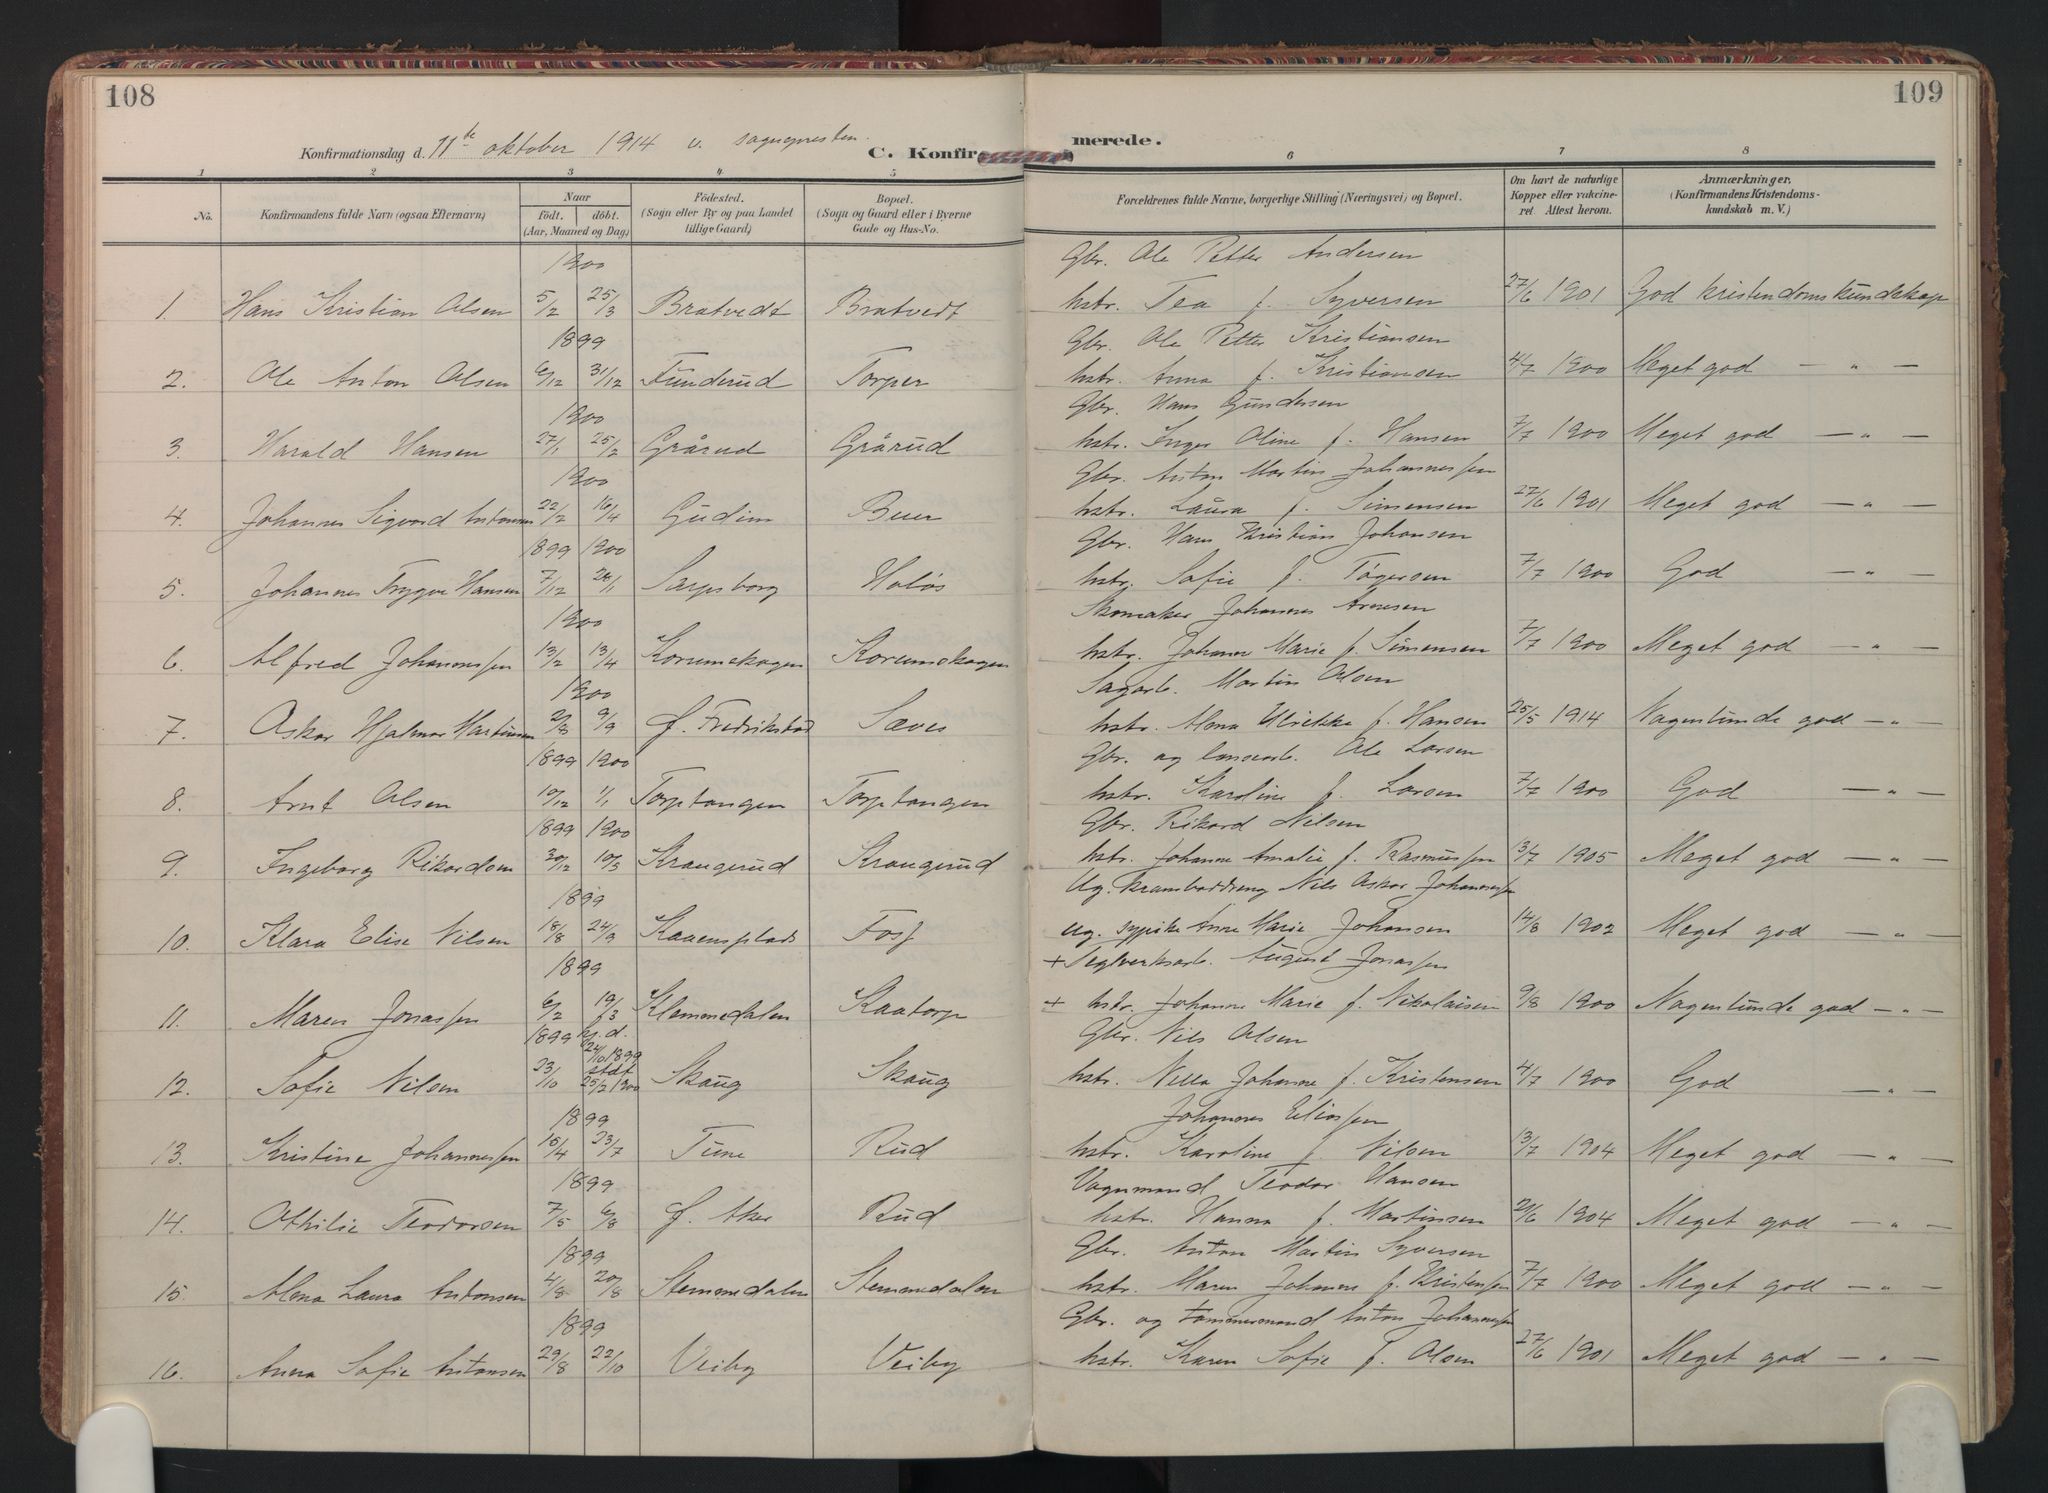 108
109
Konfirmationsdag d. 11te oktober 1914 v. sogneprsten.
C. Konfirmerede.
1 2 3 4 5 6 7 8
No.
Konfirmandens fulde Navn (ogsaa Efternavn)
Naar
födt. döbt.
(Aar, Maaned og Dag)
Födested.
(Sogn eller By og paa Landet
tillige Gaard)
Bopæl.
(Sogn og Gaard eller i Byerne
Gade og Hus-No.
Forældrenes fulde Navne, borgerlige Stilling (Næringsvei) og Bopæl.
Om havt de naturlige
Kopper eller vakcine-
ret. Attest herom.
Anmærkninger.
(Konfirmandens Kristendoms-
kundskab m. V.)
1900 Gbr. Ole Petter Andersen
1. Hans Kristian Olsen 5/2 25/3 Bratvedt Bratvedt hstr. Tea f. Syversen 27/6 1901 God kristendomskundskap
1899 Gbr. Ole Petter Kristiansen
2. Ole Anton Olsen 6/12 31/12 Funderud Torper hstr. Anna f. Kristiansen 4/7 1900 Meget god — " —
1900 Gbr. Hans Gundersen
3. Harald Hansen 27/1 25/2 Grårud Grårud hstr. Inger Oline f. Hansen 7/7 1900 Meget god — " —
1900 Gbr. Anton Martin Johannessen
4. Johannes Sigvard Antonsen 22/2 16/4 Gudim Beier hstr. Laura f. Simensen 27/6 1901 Meget god — " —
1899 1900 Gbr. Hans Kristian Johansen
5. Johannes Trygve Hansen 7/12 /1 Sarpsborg Holøs hstr. Sofie f. Tøgersen 7/7 1900 God — " —
1900 Skomaker Johannes Arnesen
6. Alfred Johannessen 13/2 13/4 Korumskogen Korumskogen hstr. Johanne Marie f. Simensen 7/7 1900 Meget god — " —
1900 Sagarb. Martin Olsen
7. Oskar Hjalmar Martinsen 2/8 9/9 f. Fredrikstad Sæves hstr. Mona Ulrikke f. Hansen 25/5 1914 Nogenlunde god — " —
1899 1900 Gbr. og lensearb. Ole Larsen
8. Arnt Olsen 10/12 1/1 Torptangen Torptangen hstr. Karoline f. Larsen 7/7 1900 God — " —
1899 1900 Gbr. Rikard Nilsen
9. Ingeborg Rikardsen 30/12 10/3 Krangerud Krangerud hstr. Johanne Amalie f. Rasmussen 13/7 1905 Meget god — " —
1899 Ug. kramboddreng Nils Oskar Johannessen
10. Klara Elise Nilsen 18/8 24/9 Kaaensplads Foss ug. sypike Anne Marie Johansen 14/8 1902 Meget god — " —
1899 + Teglverksarb. August Jonassen
11. Maren Jonassen 6/2 19/3 Klemmedalen Kaatorp + hstr. Johanne Marie f. Nikolaisen 9/8 1900 Nogenlunde god — " —
1899 hj.d. 24/10 1899 Gbr. Nils Olsen
12. Sofie Nilsen 23/10 stdf. 25/2 1900 Skaug Skaug hstr. Nella Johanne f. Kristensen 4/7 1900 God — " —
1899 Johannes Eliassen
13. Kristine Johannessen 15/4 23/7 Tune Rud hstr. Karoline f. Nilsen 13/7 1904 Meget god — " —
1899 Vognmand Teodor Hansen
14. Othilie Teodorsen 7/5 6/8 f. Aker Rud hstr. Hanna f. Martinsen 21/6 1904 Meget god — " —
1899 Gbr. Anton Martin Syversen
15. Mona Laura Antonsen 4/8 20/8 Stemmedalen Stemmedalen hstr. Maren Johanne f. Kristensen 7/7 1900 Meget god — " —
1899 Gbr. og tømmermand Anton Johannessen
16. Anna Sofie Antonsen 29/8 22/10 Veiby Veiby hstr. Karen Sofie f. Olsen 27/6 1901 Meget god — " —